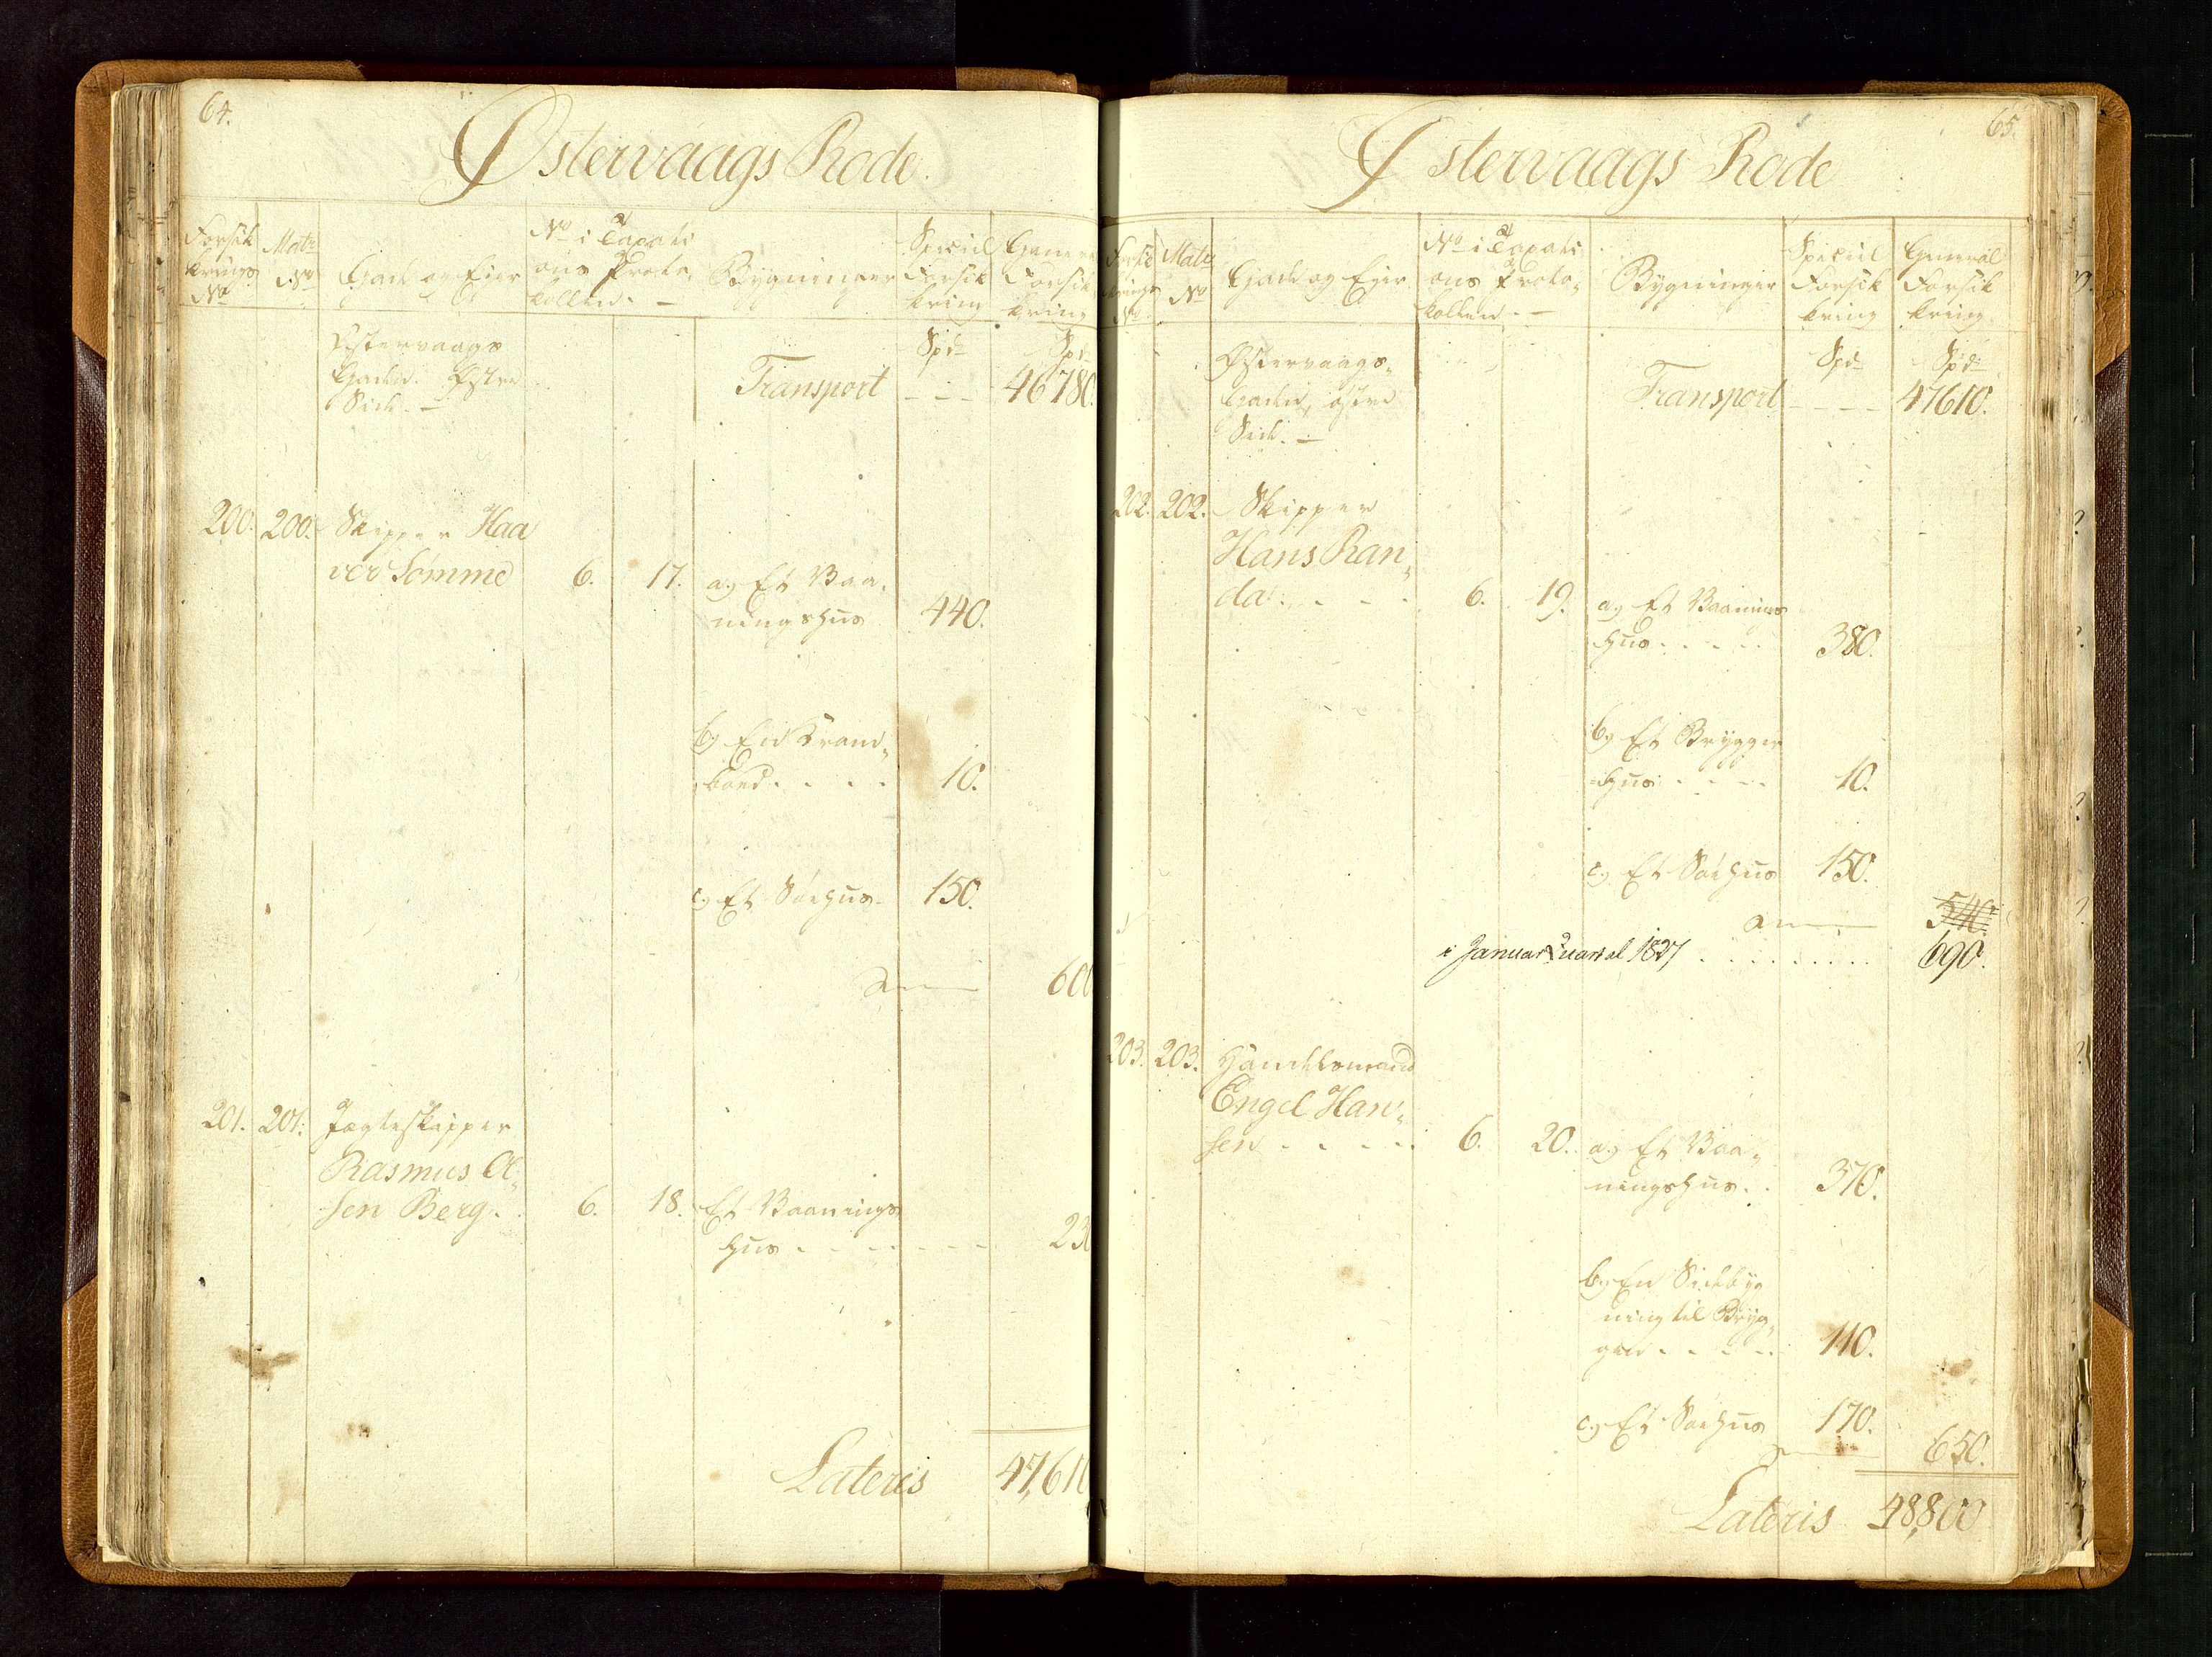 64.
Østervaags Rode.
Forsik
krings
No
Matr
No
Gade og Eier
No i Taxati
ons Proto-
kollen. —
Bygninger
Speciel
Forsik
kring
Forsik
kring
Østervaags
Gaden. Østre
Side. —
Spd
Spd
Transport - - - 46780.
200. 200. Skipper Haa
ver Sømme 6. 17. a, Et Vaa-
ningshus 440.
b,
boed . . . . 10.
c, Et Søehus 150.
600
201. 201. Jagteskipper
Rasmus Ol-
sen Berg. . 6. 18. Et Vaanings
hus - - - - - - - 23
Lateris 47,610
65.
Østervaags Rode
Forsik
krings
No
Matr
No
Gade og Eier
No i Taxati
ons Proto-
kollen. —
Bygninger
Speciel
Forsik
kring
General
Forsik
kring.
Østervaags-
Gaden, østre
Side. —
Spd
Spd
Transport - - - - 47610.
202. 202. Skipper
Hans Ran-
da . . . . 6. 19. a, Et Vaanings
hus . . . . . 380.
b, Et Brygger
hus . . . . . 10.
c, Et Søehus 150.
540.
i Januar Quartal 1827 . . . . . . . . 690.
203. 203. Handelsmand
Engel Han-
sen . . . . . 6. 20. a, Et Vaa-
ningshus . . 370.
b, En Sidebyg
ning til Bryg-
gen . . . . . 110.
c, Et Søehus 170.
650.
Lateris 48,800